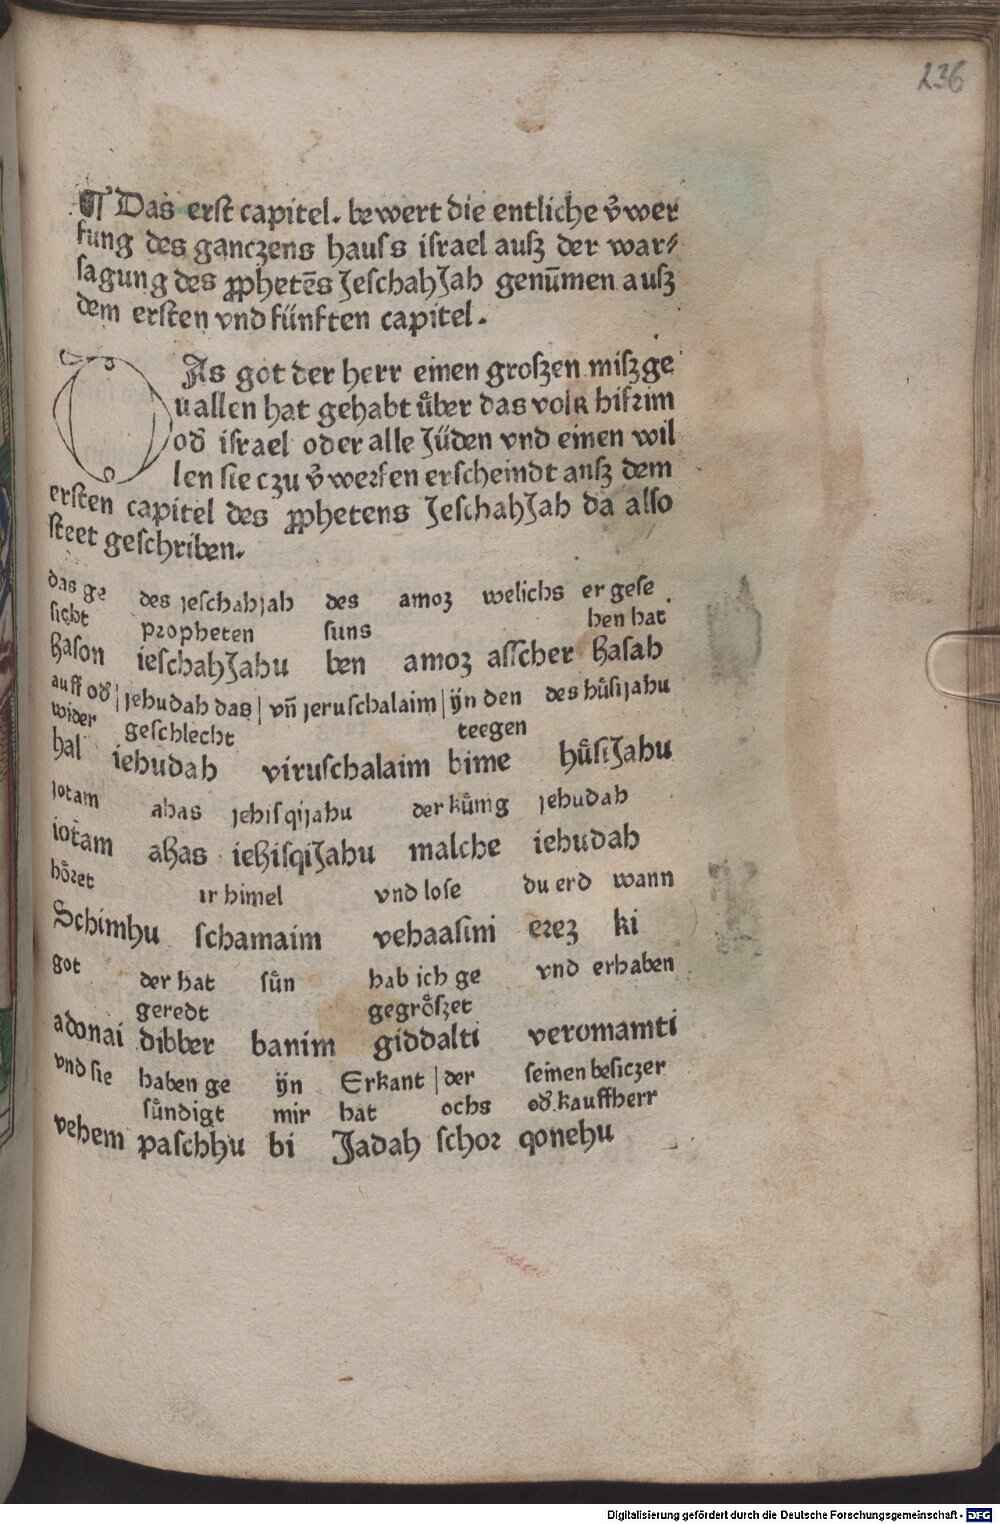 236
¶ Das erst capitel. bewert die entliche v̉wer
fung des ganczens hauss israel ausz der war⸗
sagung des ꝓphetēs JeschahJah genūmen ausz
dem ersten vnd fünften capitel.
DAs got der herr einen groszen miszge
uallen hat gehabt uͤber das volk hifrim
od̉ israel oder alle Jüden vnd einen wil
len sie czu v̉werfen erscheindt ausz dem
ersten capitel des ꝓphetens JeschahJah da also
steet geschriben.
das ge des jeschahjah des amoz welichs er gese
sicht propheten suns hen hat
Hason ieschahJahu ben amoz asscher Hasah
auff od̉ | jehudah das | vn̄ jeruschalaim | ÿn den des huͤsijahu
wider geschlecht teegen
hal iehudah viruschalaim bime huͤsiJahu
jotam ahas jehisqijahu der kuͤnig jehudah
iotam aHas ieHisqiJahu malche iehudah
hoͤret ir himel vnd lose du erd wann
Schimhu schamaim vehaasini erez ki
got der hat suͤn hab ich ge vnd erhaben
geredt gegroͤszet
adonai dibber banim giddalti veromamti
vnd sie haben ge ÿn Erkant | der seinen besiczer
suͤndigt mir hat ochs od̉ kauffherr
vehem paschhu bi Jadah schor qonehu
Digitalisierung gefördert durch die Deutsche Forschungsgemeinschaft - DFG